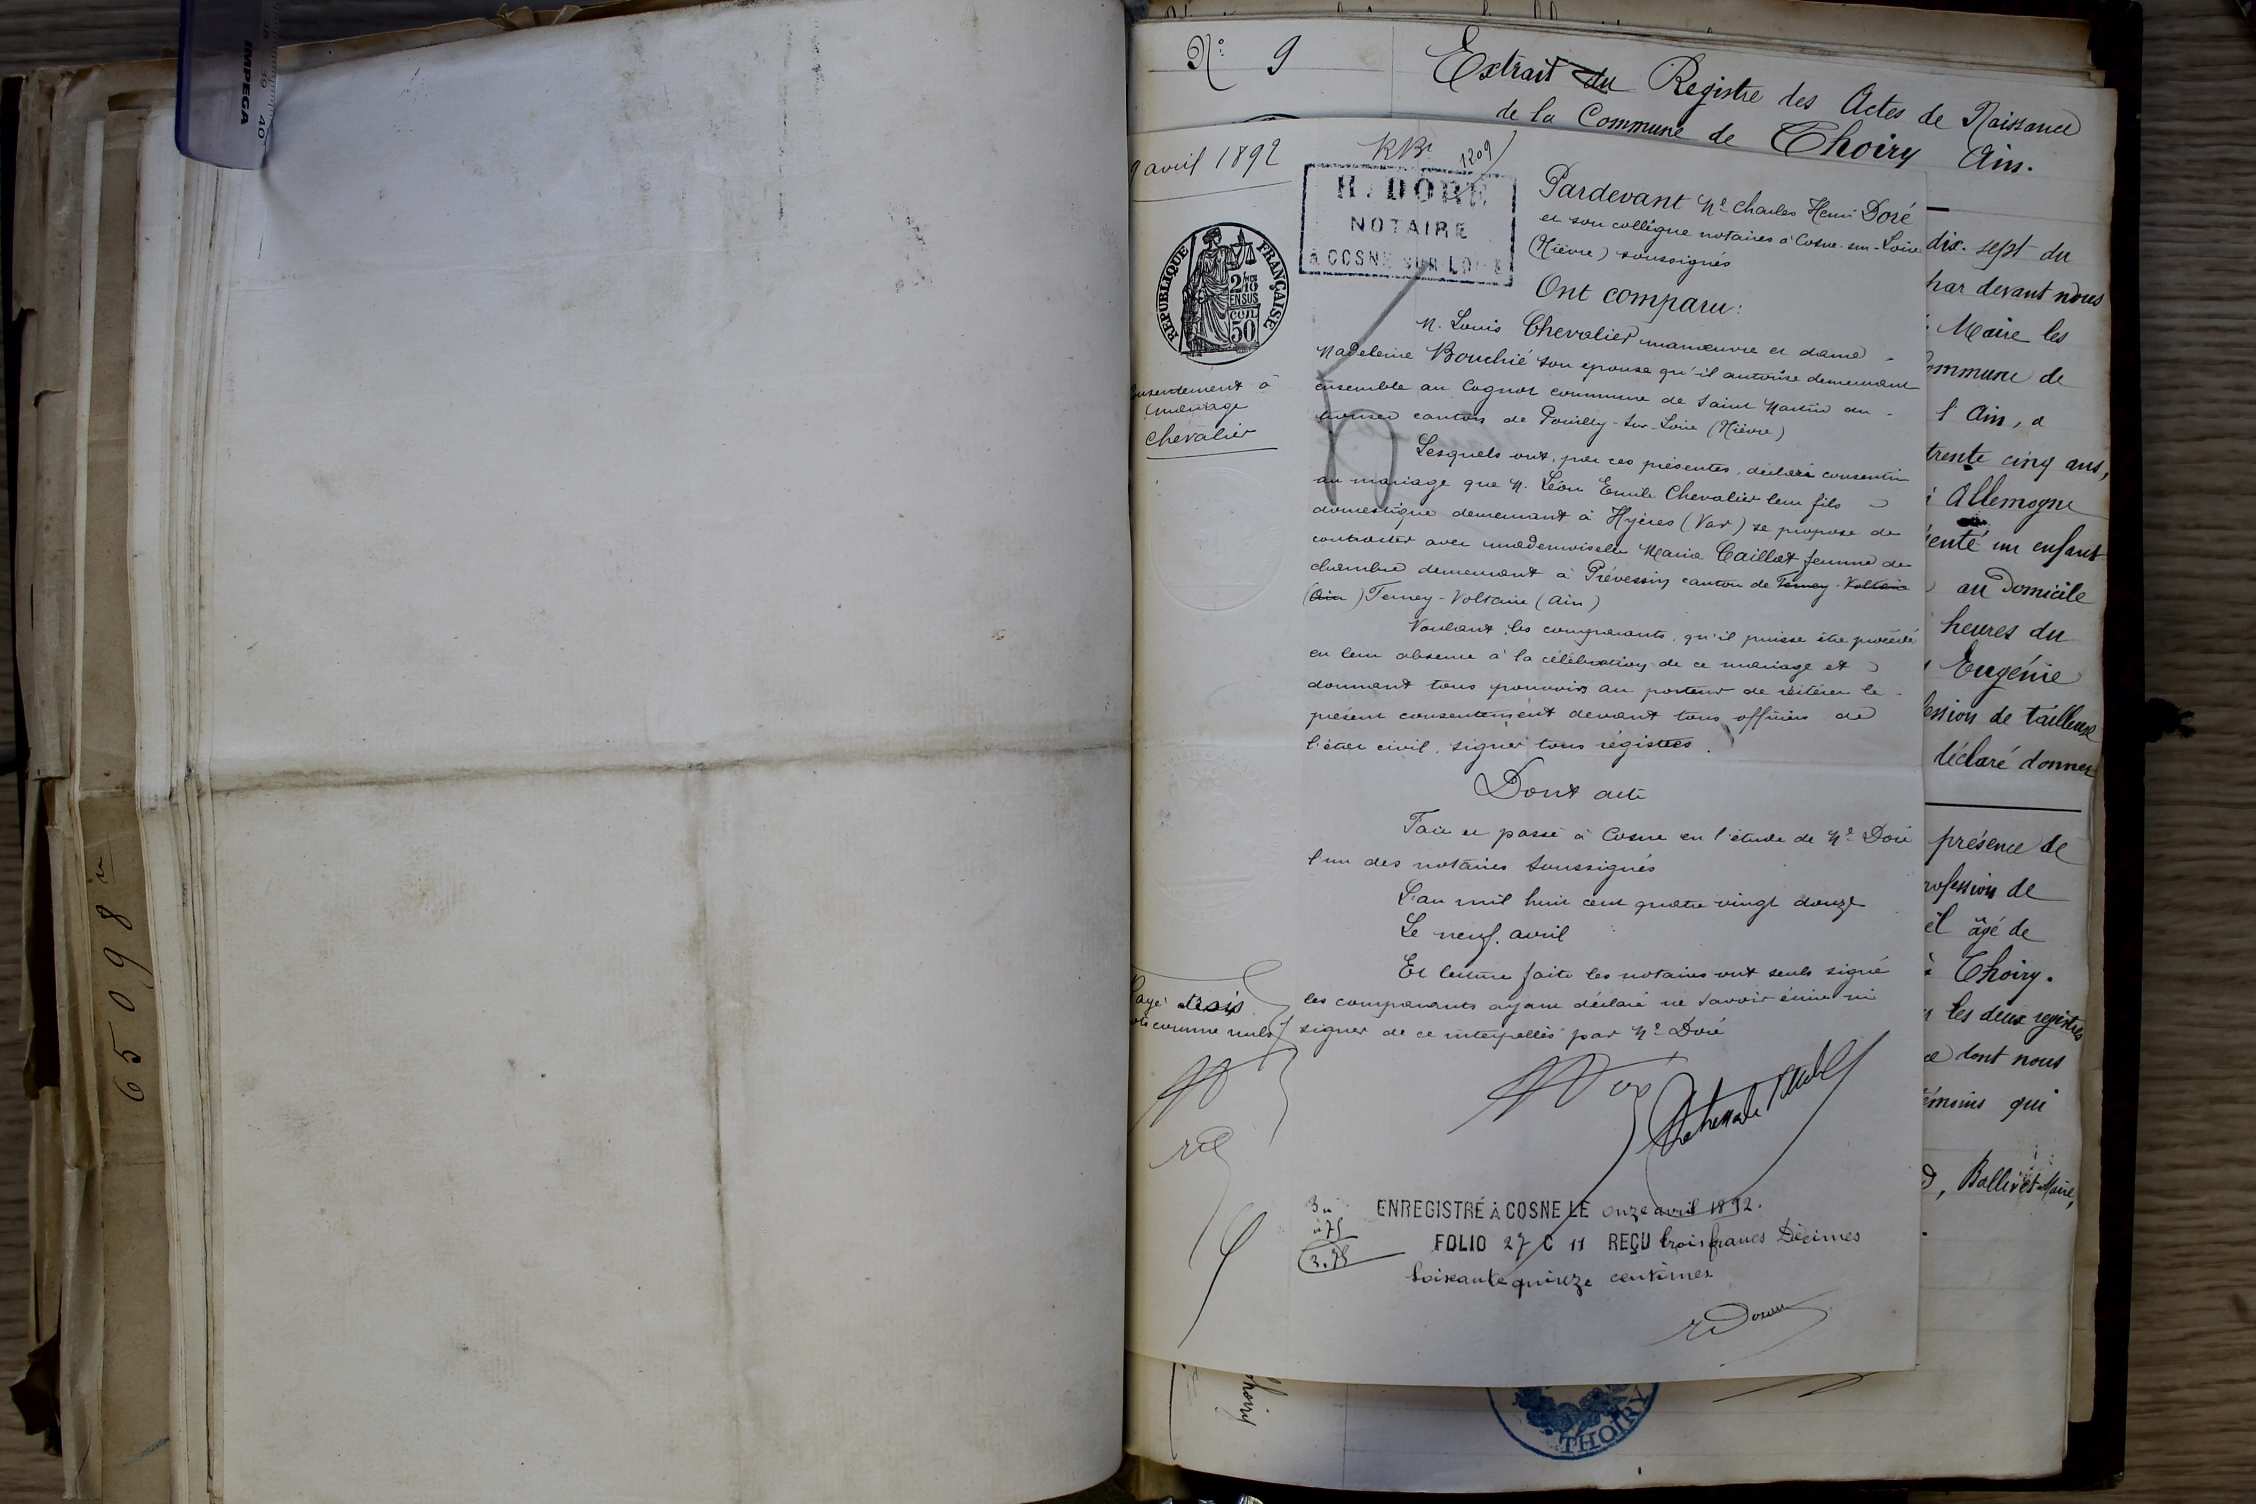 IMPEGA
39 40
65098
N° 9
Extrait du Registre des Actes de Naissance
de la Commune de Thoiry Ain.
9 avril 1892
1209
H. DORE
NOTAIRE
A COSNE SUR LOIRE
REPUBLIQUE FRANÇAISE
2/10
EN SUS
50
consentement à
mariage
Chevalier
Pardevant Me Charles Henri Doré
et son collègue notaires à Cosne-sur-Loire
(Nièvre) soussignés
Ont comparu:
M. Louis Chevalier manœuvre et dame
Madeleine Bouchié son épouse qu'il autorise demeurant
ensemble au Cognot commune de Saint Martin du
tronsec canton de Pouilly-sur-Loire (Nièvre)
Lesquels ont, par ces présentes, déclaré consentir
au mariage que M. Léon Emile Chevalier leur fils
domestique demeurant à Hyères (Var) se propose de
contracter avec mademoiselle Maria Caillat femme de
chambre demeurant à Prévessin canton de Ferney-Voltaire
(Ain) Ferney-Voltaire (Ain)
Voulant, les comparants, qu'il puisse être procédé
en leur absence à la célébration de ce mariage et
donnant tous pouvoirs au porteur de réitérer le
présent consentement devant tous officiers de
l'état civil, signer tous régistres.
Dont acte
Fait et passé à Cosne en l'étude de Me Doré
l'un des notaires soussignés
L'an mil huit cent quatre vingt douze
Le neuf avril
Et lecture faite les notaires ont seuls signé
les comparants ayant déclaré ne savoir écrire ni
signer de ce interpellés par Me Doré
Rayé trois
mots comme nuls
Doré
3
75
3.75
ENREGISTRÉ À COSNE LE onze avril 1892.
FOLIO 27 C 11 REÇU trois francs Décimes
soixante quinze centimes
dix-sept du
par devant nous
Maire les
commune de
l'Ain, a
trente cinq ans,
Allemogne
présenté un enfant
au Domicile
heures du
Eugénie
profession de tailleuse
déclaré donner
présence de
profession de
âgé de
à Thoiry.
les deux registres
dont nous
témoins qui
Ballivet Maire,
Thoiry
THOIRY